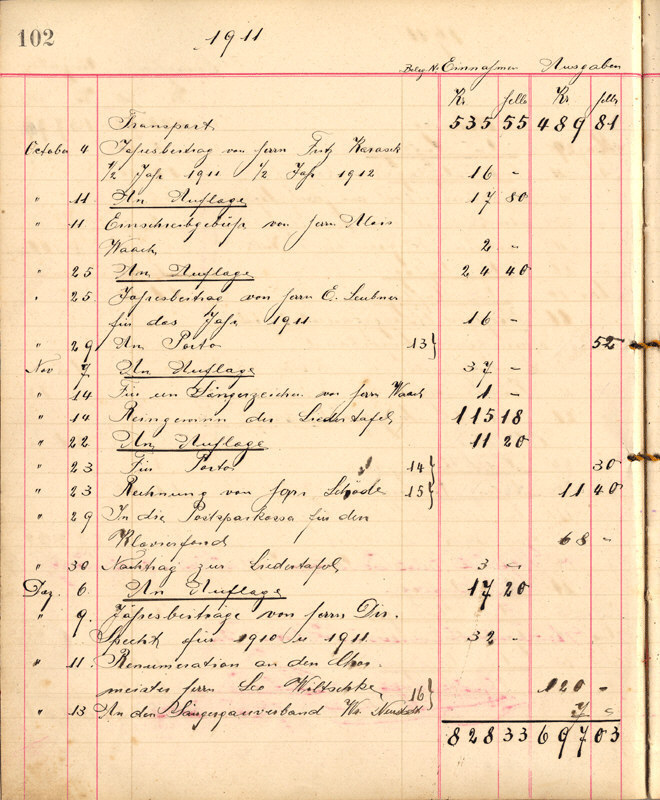 102
1911
Beleg Nr Einnahmen Ausgaben
Kr. hell. Kr. hell.
Transport 535 55 489 81
October 4 Jahresbeitrag von Herrn Fritz Karasek
1/2 Jahr 1911 1/2 Jahr 1912 16 -
" 11 An Auflage 17 80
" 11 Einschreibgebühr von Herrn Alois
Waach 2 -
" 25 An Auflage 24 40
" 25 Jahresbeitrag von Herrn E. Leubner
für das Jahr 1911 16 -
" 29 An Porto 13} 52
Nov 7 An Auflage 37 -
" 14 Für ein Sängerzeichen von Herrn Waach 1 -
" 14 Reingewinn der Liedertafel 115 18
" 22 An Auflage 11 20
" 23 Für Porto 14} 30
" 23 Rechnung von Schöde 15} 11 40
" 29 In die Postsparkassa für den
Klavierfond 68 -
" 30 Nachtrag zur Liedertafel 3 -
Dez. 6. An Auflage 17 20
" 9. Jahresbeiträge von Herrn Dir.
Specht für 1910 u 1911 32 -
" 11. Renumeration an den Chor
meister Herrn Leo Wiltschke 16} 120 -
" 13 An den Sängergauverband Wr. Neustadt 7 -
828 33 697 03